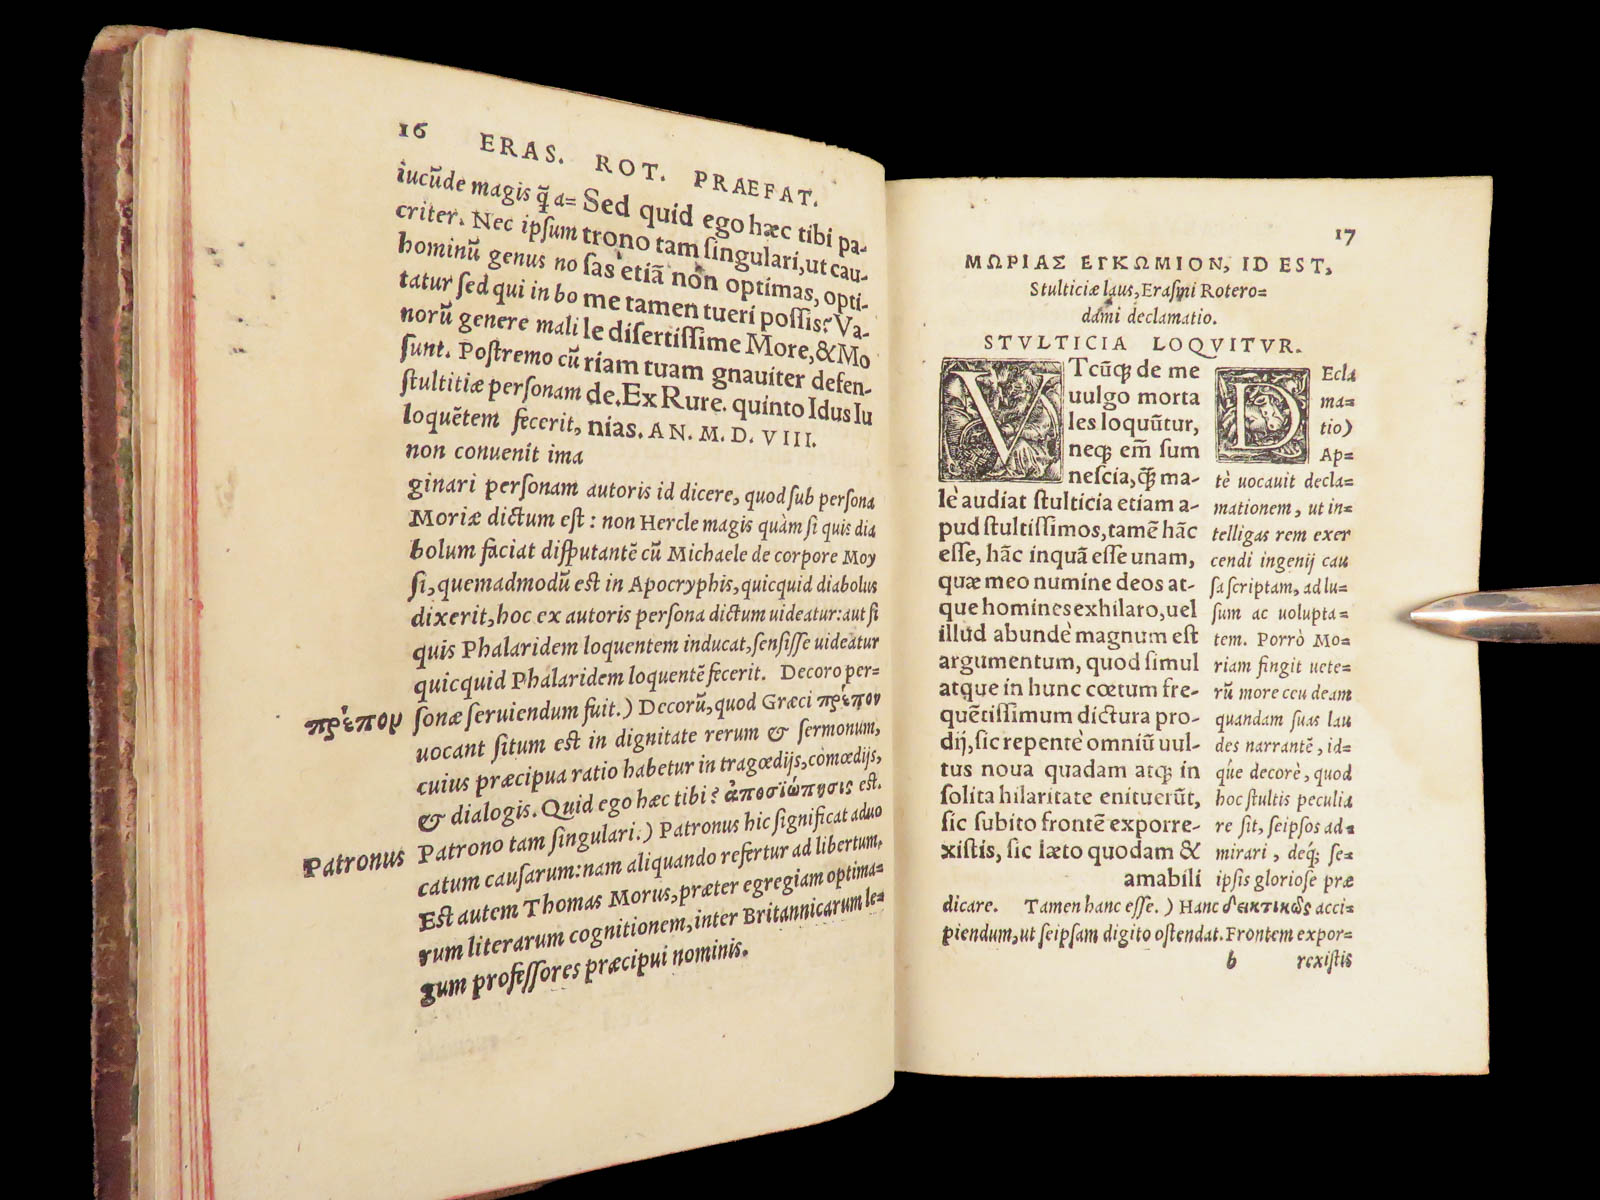 16 ERAS. ROT. PRAEFAT.
iucũde magis q̃ a=
criter. Nec ipsum
hominũ genus no
tatur sed qui in bo
norũ genere mali
sunt. Postremo cũ
stultitiæ personam
loquẽtem fecerit,
non conuenit ima
Sed quid ego hæc tibi pa-
trono tam singulari, ut cau-
sas etiã non optimas, opti-
me tamen tueri possis? Va-
le disertissime More, & Mo
riam tuam gnauiter defen-
de. Ex Rure. quinto Idus Iu
nias. AN. M. D. VIII.
ginari personam autoris id dicere, quod sub persona
Moriæ dictum est: non Hercle magis quàm si quis dia
bolum faciat disputantẽ cũ Michaele de corpore Moy
si, quemadmodũ est in Apocryphis, quicquid diabolus
dixerit, hoc ex autoris persona dictum uideatur: aut si
quis Phalaridem loquentem inducat, sensisse uideatur
quicquid Phalaridem loquentẽ fecerit. Decoro per=
πρέπον
sonæ seruiendum fuit.) Decorũ, quod Græci πρέπον
uocant situm est in dignitate rerum & sermonum,
cuius præcipua ratio habetur in tragœdijs, comœdijs,
& dialogis. Quid ego hæc tibi? ἀποσϊώπησις est.
Patronus
Patrono tam singulari.) Patronus hic significat aduo
catum causarum: nam aliquando refertur ad libertum.
Est autem Thomas Morus, præter egregiam optima=
rum literarum cognitionem, inter Britannicarum le=
gum professores præcipui nominis.
17
ΜΩΡΙΑΣ ΕΓΚΩΜΙΟΝ, ID EST,
Stulticiæ laus, Erasmi Rotero=
dami declamatio.
STVLTICIA LOQVITVR.
VTcũq; de me
uulgo morta
les loquũtur,
neq; em̃ sum
nescia, q̃ ma-
lè audiat stulticia etiam a-
pud stultissimos, tamẽ hãc
esse, hãc inquã esse unam,
quæ meo numine deos at-
que homines exhilaro, uel
illud abundè magnum est
argumentum, quod simul
atque in hunc cœtum fre-
quẽtissimum dictura pro-
dij, sic repentè omniũ uul-
tus noua quadam atq; in
solita hilaritate enituerũt,
sic subito frontẽ exporre-
xistis, sic læto quodam &
amabili
DEcla
ma=
tio)
Ap=
tè uocauit decla=
mationem, ut in=
telligas rem exer
cendi ingenij cau
sa scriptam, ad lu=
sum ac uolupta=
tem. Porrò Mo=
riam fingit uete=
rũ more ceu deam
quandam suas lau
des narrantẽ, id=
q́ue decorè, quod
hoc stultis peculia
re sit, seipsos ad=
mirari, deq́; se=
ipsis gloriose præ
dicare. Tamen hanc esse.) Hanc δεικτικῶς acci=
piendum, ut seipsam digito ostendat. Frontem expor=
b rexistis